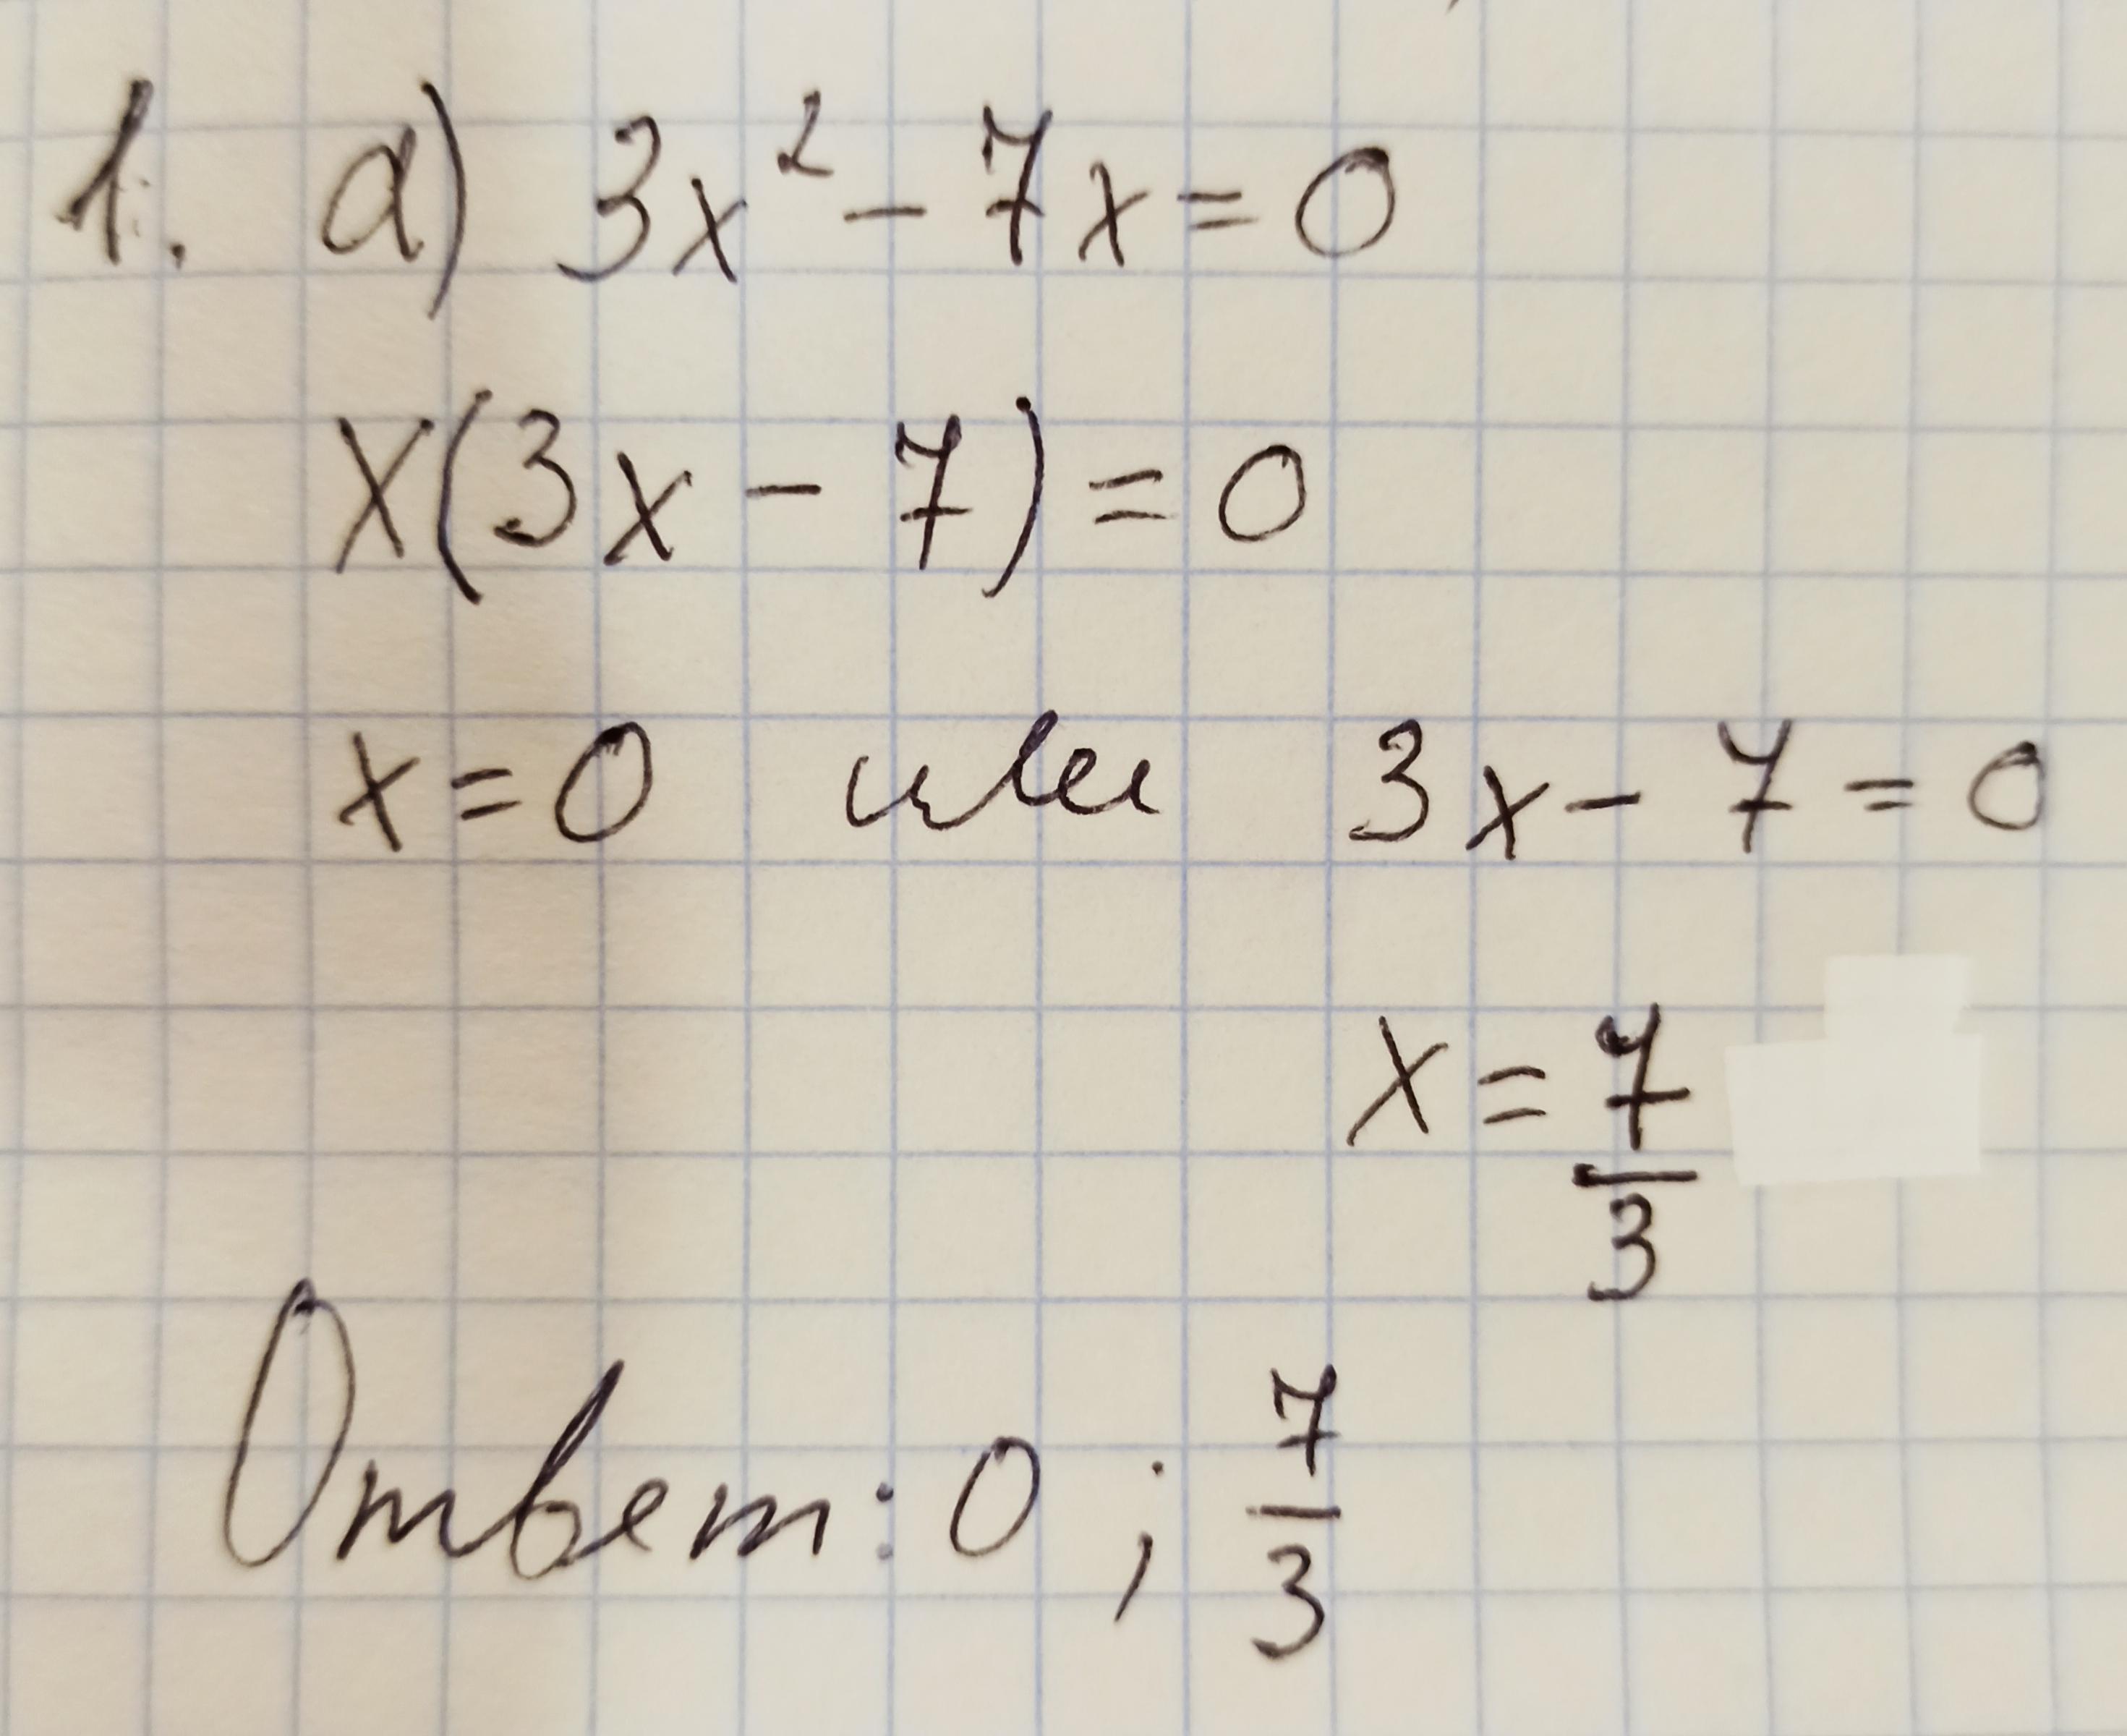 1. а) 3x² - 7x = 0
x(3x - 7) = 0
x = 0 или 3x - 7 = 0
x = 7/3
Ответ: 0 ; 7/3